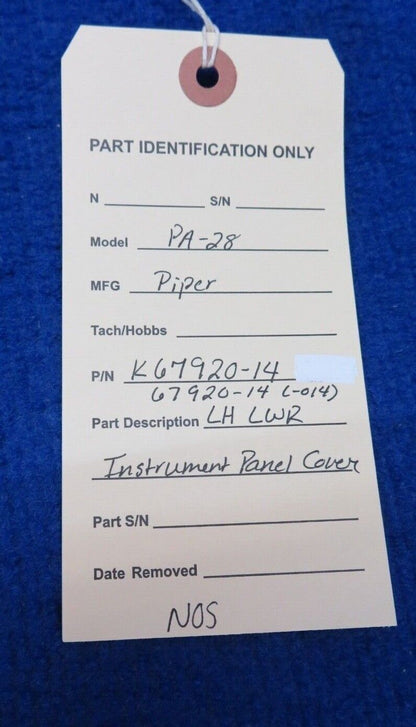 PART IDENTIFICATION ONLY
N S/N
Model PA-28
MFG Piper
Tach/Hobbs
P/N K67920-14
67920-14 (-014)
Part Description LH LWR
Instrument Panel Cover
Part S/N
Date Removed
NOS